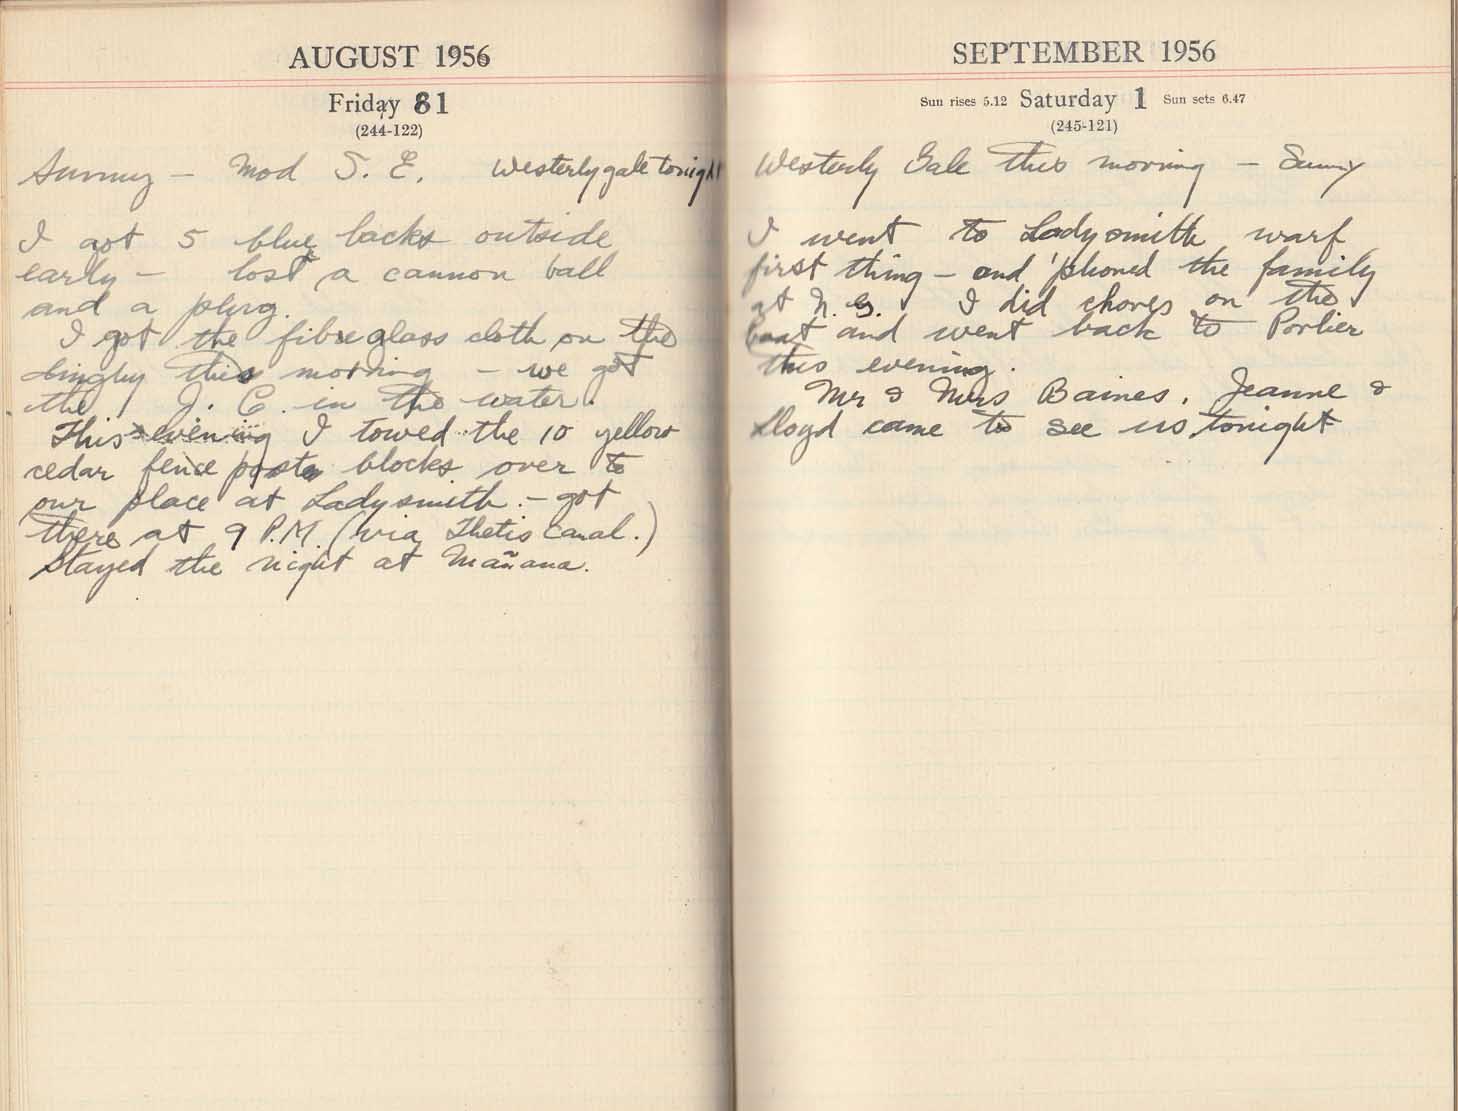 AUGUST 1956
Friday 31
(244-122)
Sunny – Mod S. E. Westerly gale tonight
I got 5 blue backs outside
early – lost a cannon ball
and a plug.
I got the fibreglass cloth on the
dinghy this morning – we got
the J. C. in the water.
This evening I towed the 10 yellow
cedar fence posts blocks over to
our place at Ladysmith. – got
there at 9 P.M. (via Thetis canal.)
Stayed the night at Mañana.
SEPTEMBER 1956
Sun rises 5.12 Saturday 1 Sun sets 6.47
(245-121)
Westerly Gale this morning – Sunny
I went to Ladysmith warf
first thing – and 'phoned the family
at N. G. I did chores on the
boat and went back to Porlier
this evening.
Mr & Mrs Baines, Jeanne &
Lloyd came to see us tonight